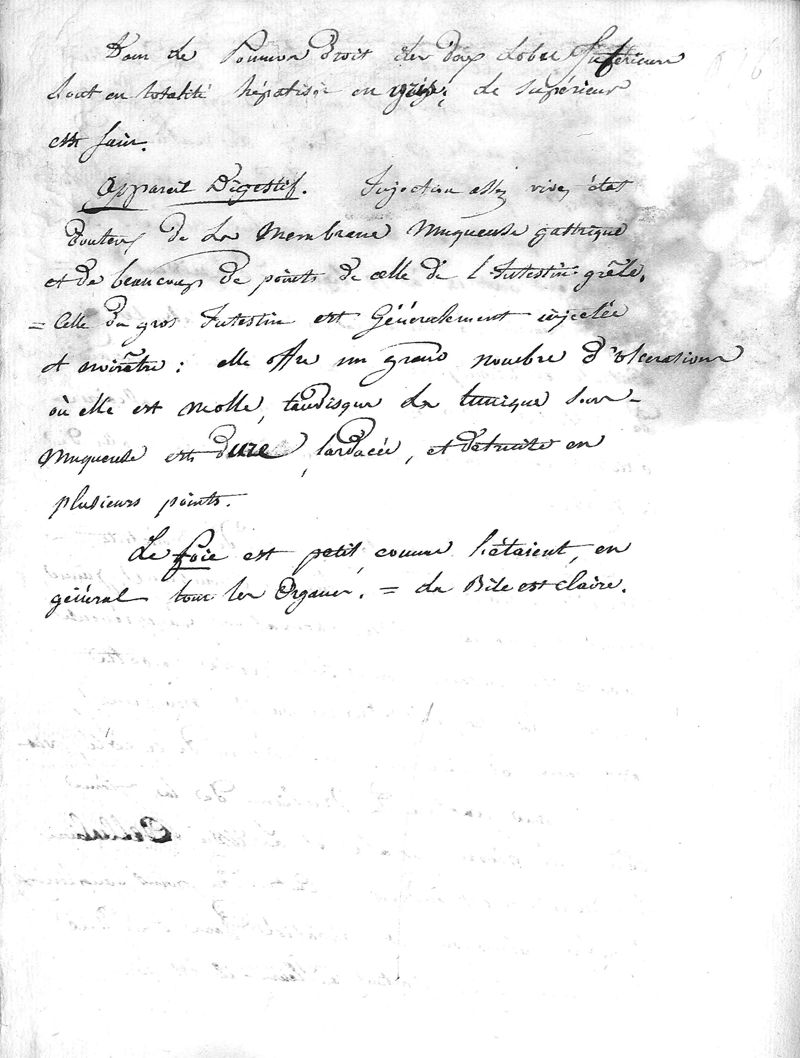 Dans le Poumon droit les deux lobes Inférieurs
sont en totalité hépatisés en gris, le supérieur
est sain.
Appareil Digestif. Injection assez vive, état
de la Membrane Muqueuse gastrique
et de beaucoup de points de celle de l'Intestin grêle.
= Celle du gros Intestin est Généralement injectée
et noirâtre : elle offre un grand nombre d'ulcérations
où elle est molle, tandisque la tunique sous-
Muqueuse est dure, lardacée, et détruite en
plusieurs points.
Le foie est petit, comme l'étaient, en
général tous les Organes. = La Bile est claire.